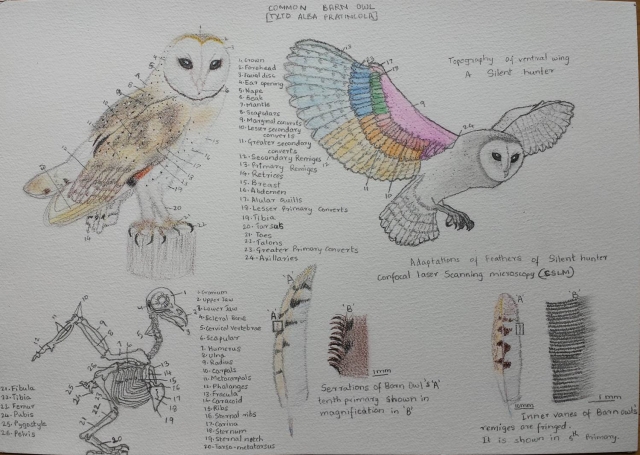 COMMON BARN OWL
[TYTO ALBA PRATINCOLA]
1. Crown
2. Forehead
3. Facial disc
4. Ear opening
5. Nape
6. Beak
7. Mantle
8. Scapulars
9. Marginal converts
10. Lesser secondary
converts
11. Greater secondary
converts
12. Secondary Remiges
13. Primary Remiges
14. Retrices
15. Breast
16. Abdomen
17. Alular quills
18. Lesser Primary Converts
19. Tibia
20. Tarsals
21. Toes
22. Talons
23. Greater Primary Converts
24. Axillaries
Topography of ventral wing
A Silent hunter
Adaptations of Feathers of Silent hunter
Confocal laser Scanning microscopy (CSLM)
1. Cranium
2. Upper Jaw
3. Lower Jaw
4. Scleral Bone
5. Cervical Vertebrae
6. Scapular
7. Humerus
8. Ulna
9. Radius
10. Carpals
11. Metacarpals
12. Phalanges
13. Fracula
14. Coracoid
15. Ribs
16. Sternal ribs
17. Carina
18. Sternum
19. Sternal notch
20. Tarso-metatarsus
21. Fibula
22. Tibia
23. Femur
24. Pubis
25. Pygostyle
26. Pelvis
A'
A
'B'
1mm
Serrations of Barn Owl's 'A'
tenth primary shown in
magnification in 'B'
A
A'
10mm
1 mm
Inner vanes of Barn owl's
remiges are fringed.
It is shown in 5th Primary.